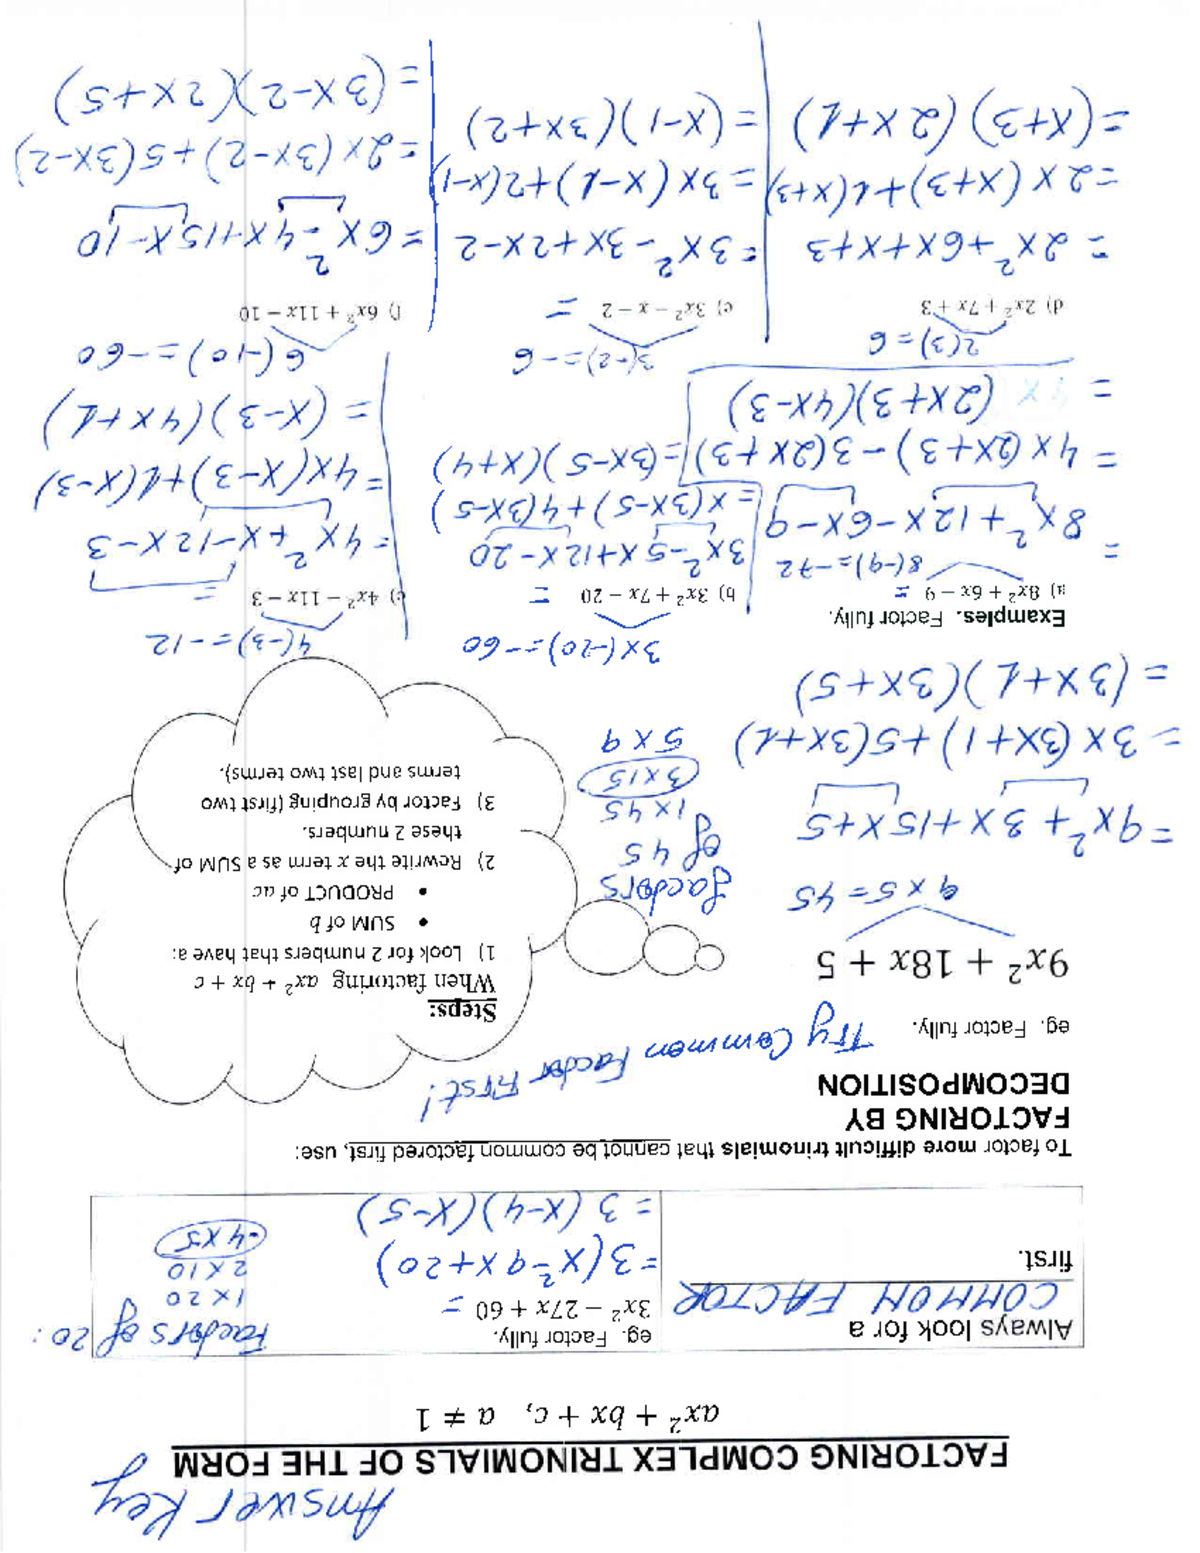 Answer Key
FACTORING COMPLEX TRINOMIALS OF THE FORM
ax² + bx + c, a ≠ 1
Always look for a
COMMON FACTOR
first.
eg. Factor fully.
3x² − 27x + 60 =
=3(x²-9x+20)
=3(x-4)(x-5)
Factors of 20:
1x20
2x10
-4x5
To factor more difficult trinomials that cannot be common factored first, use:
FACTORING BY
DECOMPOSITION
Try Common Factor First!
eg. Factor fully.
9x² + 18x + 5
9x5=45
=9x²+3x+15x+5
=3x(3x+1)+5(3x+1)
=(3x+1)(3x+5)
factors
of 45
1x45
3x15
5x9
Steps:
When factoring ax² + bx + c
1) Look for 2 numbers that have a:
• SUM of b
• PRODUCT of ac
2) Rewrite the x term as a SUM of
these 2 numbers.
3) Factor by grouping (first two
terms and last two terms).
Examples. Factor fully.
a) 8x² + 6x − 9 =
8(-9)=-72
= 8x²+12x-6x-9
= 4x(2x+3)-3(2x+3)
= (2x+3)(4x-3)
3x(-20)=-60
b) 3x² + 7x − 20 =
3x²-5x+12x-20
=x(3x-5)+4(3x-5)
=(3x-5)(x+4)
4(-3)=-12
c) 4x² − 11x − 3 =
=4x²+x-12x-3
=4x(x-3)+1(x-3)
=(x-3)(4x+1)
2(3)=6
d) 2x² + 7x + 3
=2x²+6x+x+3
=2x(x+3)+1(x+3)
=(x+3)(2x+1)
3(-2)=-6
e) 3x² − x − 2 =
=3x²-3x+2x-2
=3x(x-1)+2(x-1)
=(x-1)(3x+2)
6(-10)=-60
f) 6x² + 11x − 10
=6x²-4x+15x-10
=2x(3x-2)+5(3x-2)
=(3x-2)(2x+5)